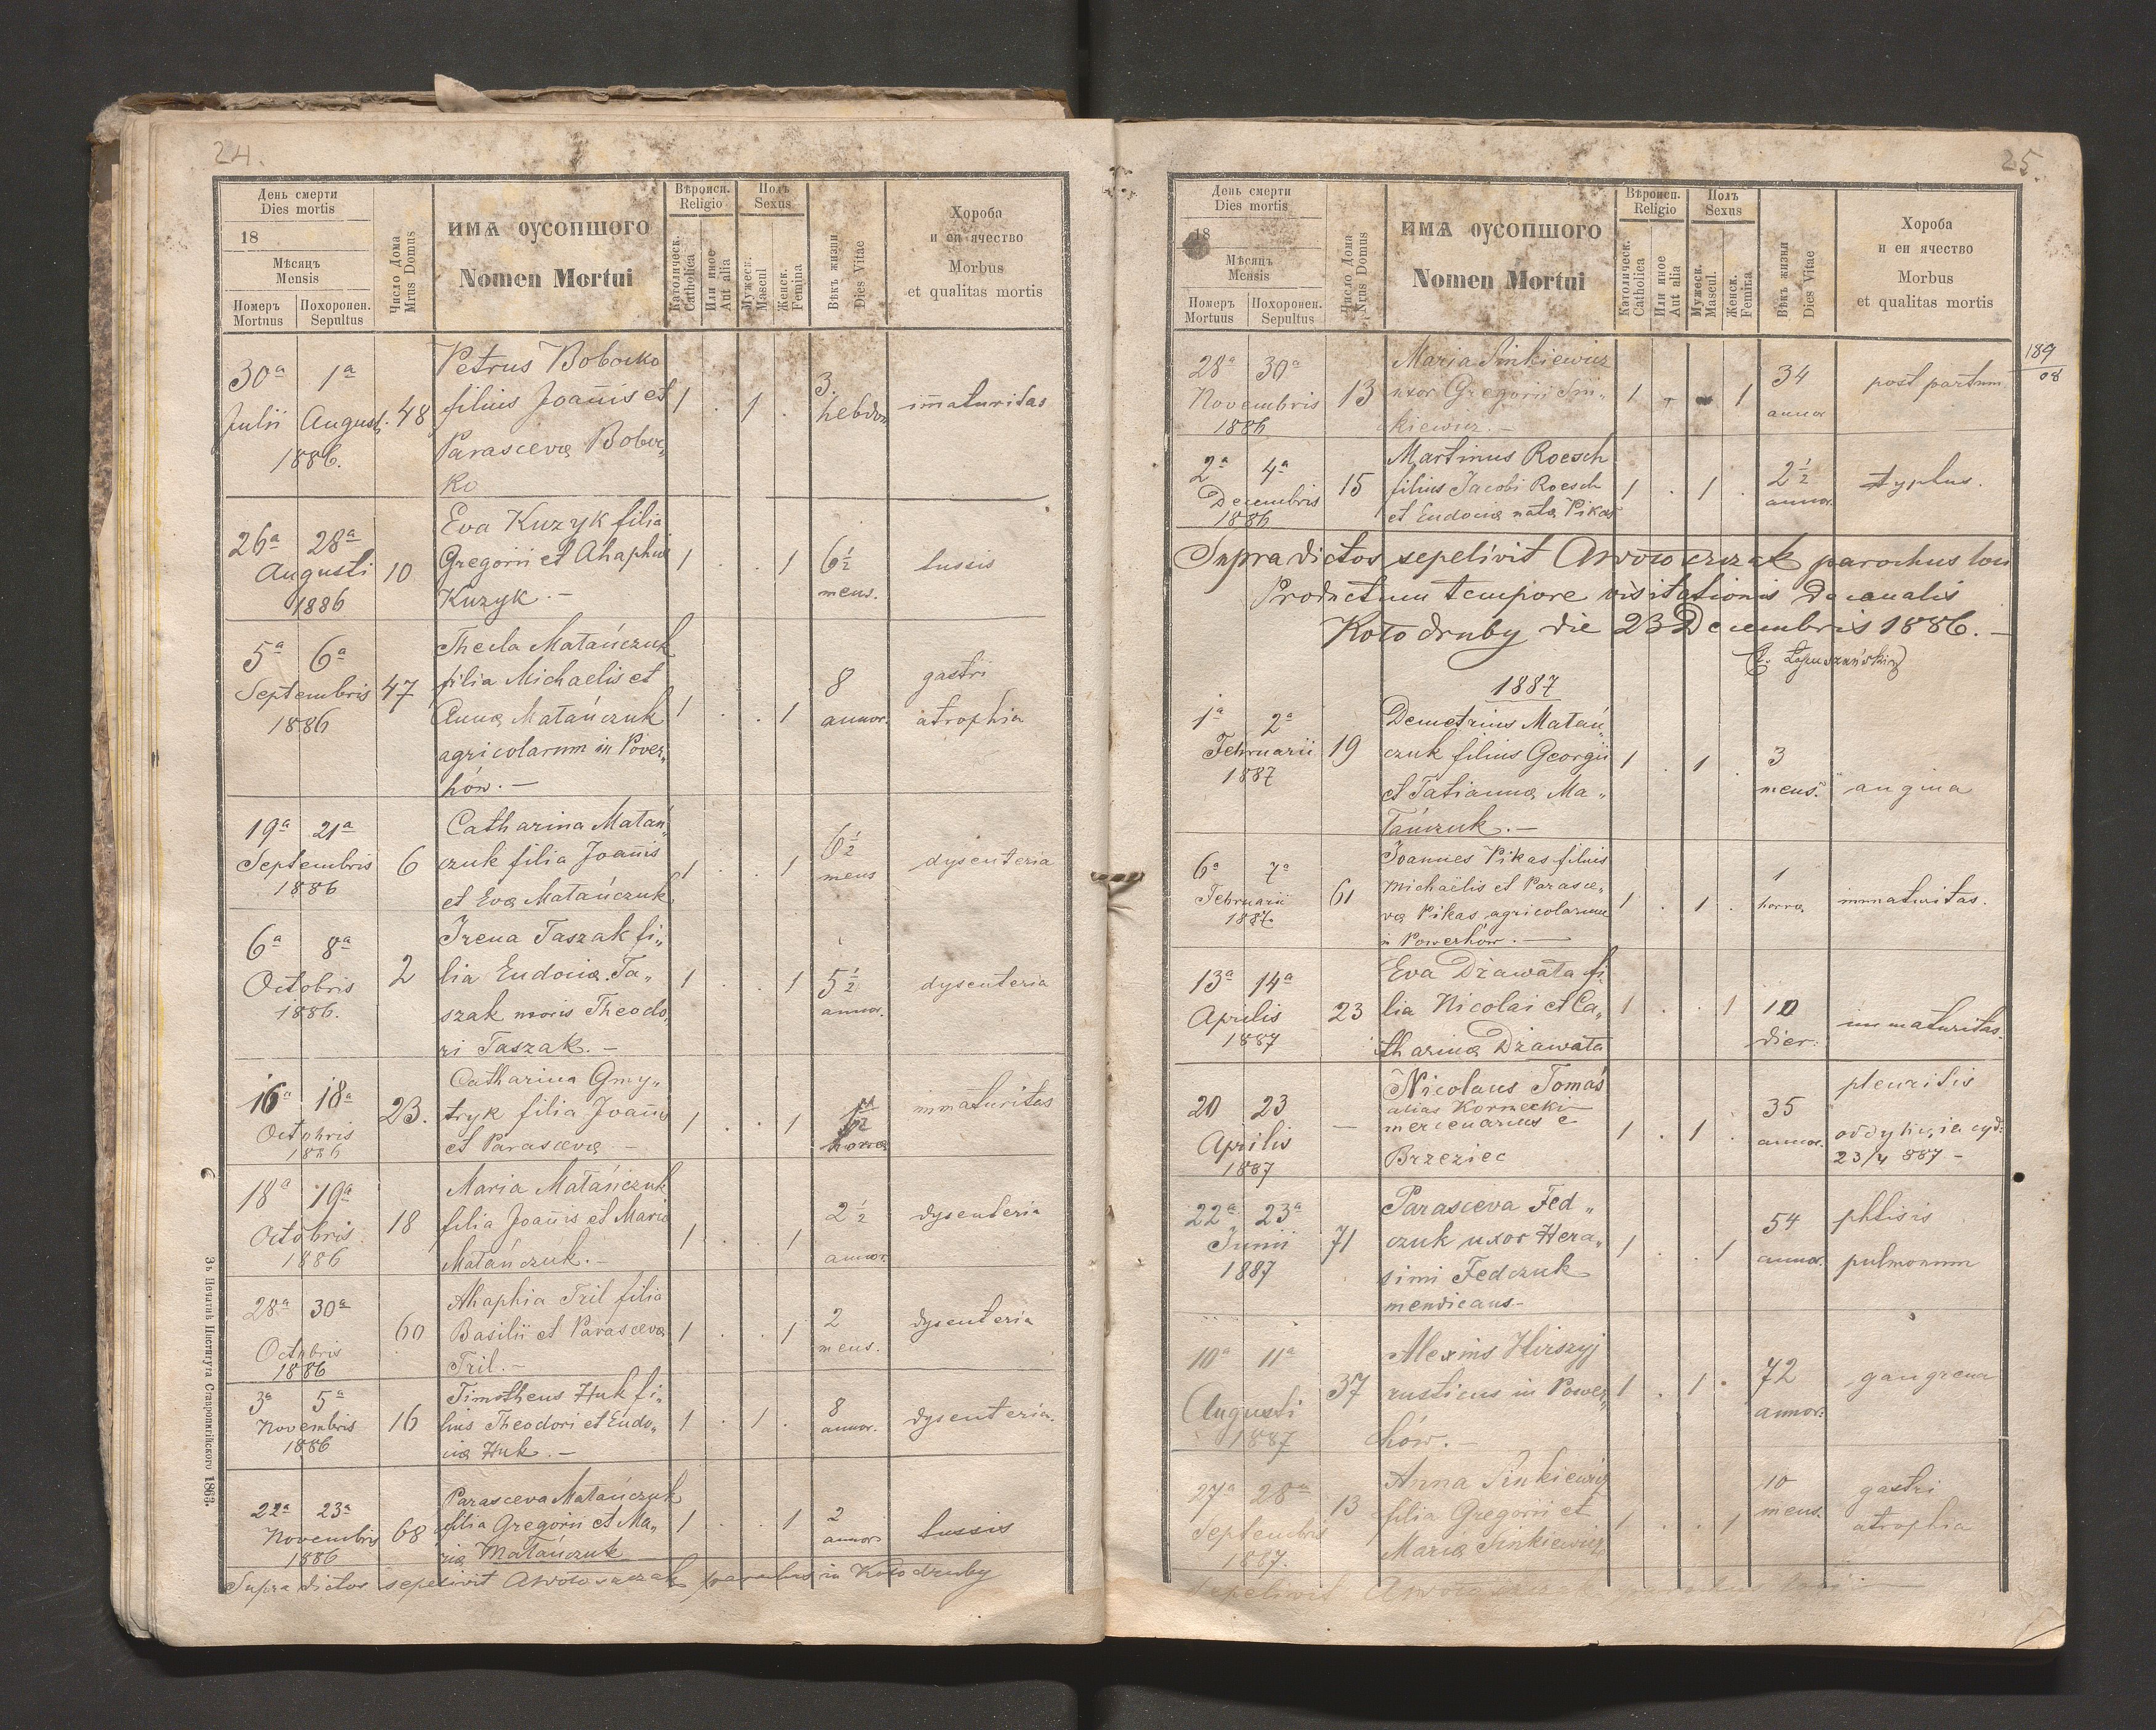 24.
День смерти
Dies mortis
18
Мѣсяцъ
Mensis
Номеръ
Mortuus
Похоронен.
Sepultus
Число Дома
Nrus Domus
имѧ оусопшого
Nomen Mortui
Вѣроисп.
Religio
Католическ.
Catholica
Или иное
Aut alia
Полъ
Sexus
Мужеск.
Mascul
Женск.
Femina
Вѣкъ жизни
Dies Vitae
Хороба
и еи ячество
Morbus
et qualitas mortis
30ª 1ª
Julii August.
1886.
48
Petrus Boboćko
filius Joannis et
Parasceva Boboć„
ko
1 . 1 .
3.
hebdom
immaturitas
26ª 28ª
Augusti
1886
10
Eva Kuzyk filia
Gregorii et Ahaphia
Kuzyk. –
1 . . 1
6 1/2
mens.
tussis
5ª 6ª
Septembris
1886
47
Thecla Matańczuk
filia Michaelis et
Anna Matańczuk
agricolarum in Pover„
hów. –
1 . . 1
8
annor.
gastri
atrophia
19ª 21ª
Septembris
1886
6
Catharina Matań„
czuk filia Joannis
et Eva Matańczuk
1 . . 1
6 1/2
mens
dysenteria
6ª 8ª
Octobris
1886.
2
Irena Taszak fi„
lia Eudocia Ta„
szak uxoris Theodo„
ri Taszak. –
1 . . 1
5 1/2
annor.
dysenteria
16ª 18ª
Octobris
1886
23.
Catharina Gmy„
tryk filia Joannis
et Parasceva –
1 . . 1
horra
immaturitas
18ª 19ª
Octobris.
1886
18
Maria Matańczuk
filia Joannis et Maria
Matańczuk. –
1 . . 1
2 1/2
annor.
dysenteria
28ª 30ª
Octobris
1886
60
Ahaphia Tril filia
Basilii et Parasceva
Tril. –
1 . . 1
2
mens.
dysenteria
3ª 5ª
Novembris
1886
16
Timotheus Huk fi„
lius Theodori et Eudo„
cia Huk. –
1 . 1 .
8
annor.
dysenteria.
22ª 23ª
Novembris
1886
68
Parasceva Matańczuk
filia Gregorii et Ma„
ria Matańczuk
1 . . 1
2
annor
tussis
Supra dictos sepelivit parochus in Kołodruby
Зъ Печатнѣ Института Ставропигійского 1863.
25.
День смерти
Dies mortis
18
Мѣсяцъ
Mensis
Номеръ
Mortuus
Похоронен.
Sepultus
Число Дома
Nrus Domus
имѧ оусопшого
Nomen Mortui
Вѣроисп.
Religio
Католическ.
Catholica
Или иное
Aut alia
Полъ
Sexus
Мужеск.
Mascul.
Женск.
Femina
Вѣкъ жизни
Dies Vitae
Хороба
и еи ячество
Morbus
et qualitas mortis
189
08
28ª 30ª
Novembris
1886
13
Maria Sinkiewicz
uxor Gregorii Sin„
kiewicz. –
1 . . 1
34
annor
post partum
2ª 4ª
Decembris
1886
15
Martinus Roesch
filius Jacobi Roesch
et Eudocia nata Pikas
1 . 1 .
2 1/2
annor.
typhus.
Supra dictos sepelivit parochus loci
Productum tempore visitationis decanalis
Kołodruby die 23 Decembris 1886. –
1887
1ª 2ª
Februarii
1887
19
Demetrius Matań„
czuk filius Georgii
et Tatianna Ma„
tańczuk. –
1 . 1 .
3
mens.
angina
6ª 7ª
Februarii
1887.
61
Joannes Pikas filius
Michaëlis et Parasce„
va Pikas agricolarum
in Powerhów. –
1 . 1 .
1
horra
immaturitas.
13ª 14ª
Aprilis
1887
23
Eva Dżawała fi„
lia Nicolai et Ca„
tharina Dżawała
1 . . 1
10
dier.
immaturitas
20 23
Aprilis
1887
–
Nicolaus Tomaś
alias Kornecki
mercenarius e
Brzeziec
1 . 1 .
35
annor.
pleuritis
23/4 887 –
22ª 23ª
Junii
1887
71
Parasceva Fed„
czuk uxor Hera„
simi Fedczuk
mendicans –
1 . . 1
54
annor.
phtisis
pulmonum
10ª 11ª
Augusti
1887
37
Alexius Hirszyj
rusticus in Power„
hów. –
1 . 1 .
72
annor:
gangrena
27ª 28ª
Septembris
1887.
13
Anna Sinkiewicz
filia Gregorii et
Maria Sinkiewicz
1 . . 1
10
mens.
gastri
atrophia
Sepelivit